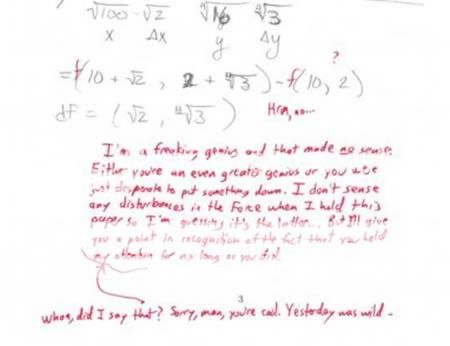 √100 - √2 ∜16 ∜3
x Δx y Δy
?
= f(10 + √2, 2 + ∜3) - f(10, 2)
df = (√2, ∜3) Hmm, no...
I'm a freaking genius and that made no sense.
Either you're an even greater genius or you were
just desperate to put something down. I don't sense
any disturbances in the Force when I hold this
paper so I'm guessing it's the latter... But I'll give
you a point in recognition of the fact that you held
my attention for as long as you did.
3
whoa, did I say that? Sorry, man, you're cool. Yesterday was wild -